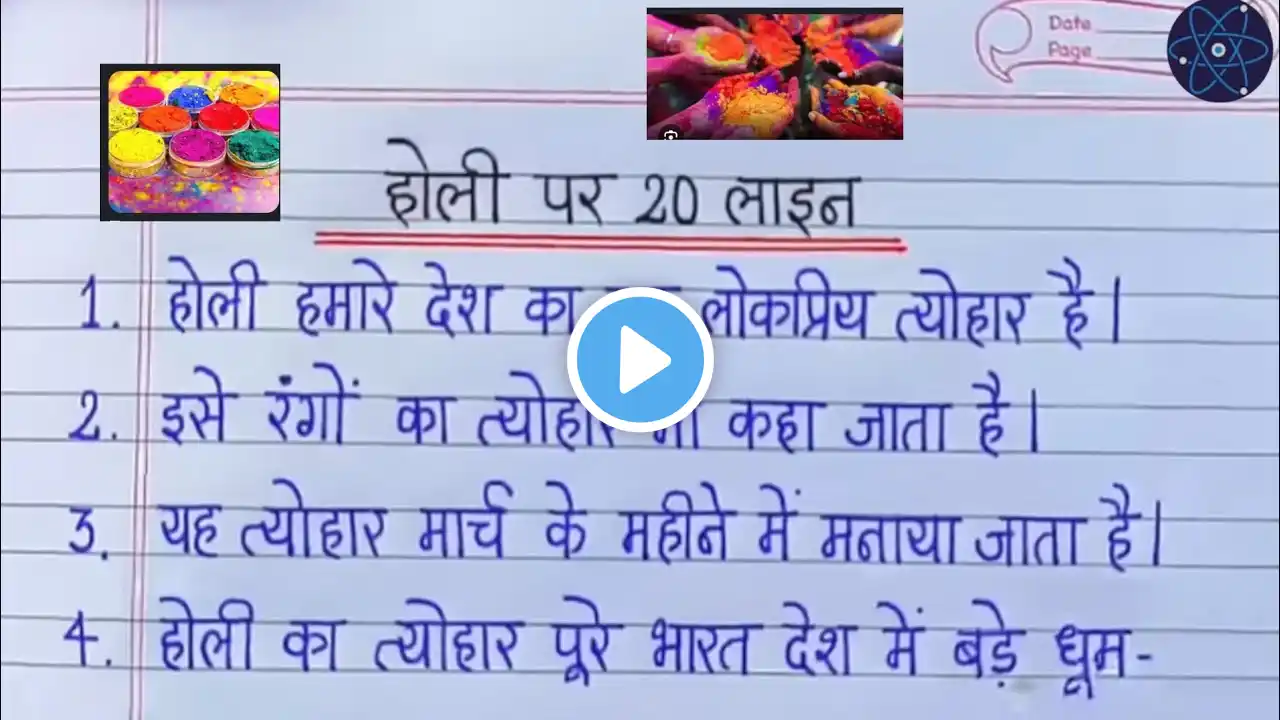 Date
Page
होली पर 20 लाइन
1. होली हमारे देश का लोकप्रिय त्योहार है।
2. इसे रंगों का त्योहार कहा जाता है।
3. यह त्योहार मार्च के महीने में मनाया जाता है।
4. होली का त्योहार पूरे भारत देश में बड़े धूम-